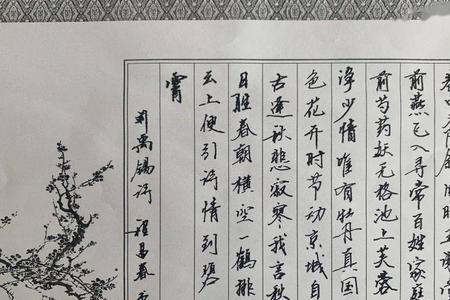 旧时王谢堂
前燕飞入寻常百姓家庭
前芍药妖无格池上芙蓉
净少情唯有牡丹真国
色花开时节动京城自
古逢秋悲寂寥我言秋
日胜春朝横空一鹤排
云上便引诗情到碧
霄
刘禹锡诗 程昌春